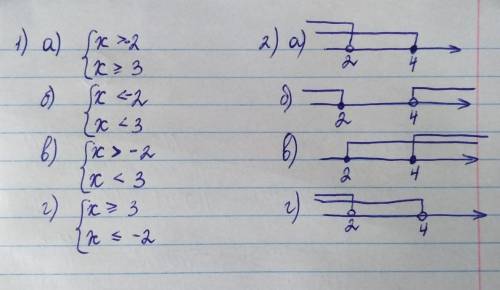 1) а) { x > -2
x ≥ 3
б) { x < -2
x < 3
в) { x > -2
x < 3
г) { x ≥ 3
x ≤ -2
2) а)
2 4
б)
2 4
в)
2 4
г)
2 4